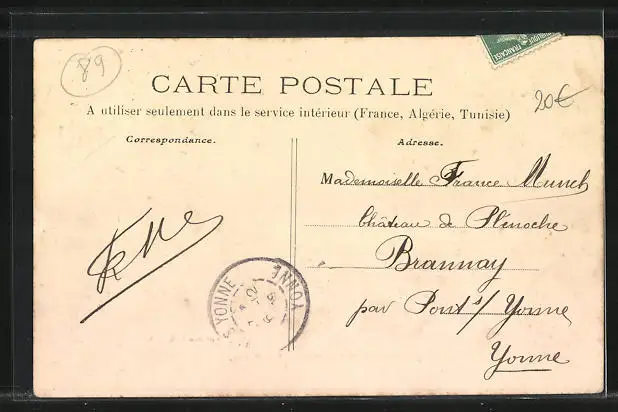 89
CARTE POSTALE
20€
A utiliser seulement dans le service intérieur (France, Algérie, Tunisie)
Correspondance.
Adresse.
Mademoiselle France Munch
Château de Plénoche
Brannay
par Pont s/ Yonne
Yonne
YONNE
YONNE